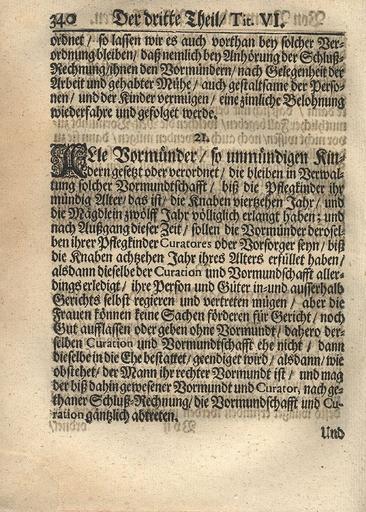 340 Der dritte Theil / Tit. VI.
ordnet / so lassen wir es auch vorthan bey solcher Ver-
ordnung bleiben / daß nemlich bey Anhörung der Schluß-
Rechnung / ihnen den Vormündern / nach Gelegenheit der
Arbeit und gehabter Mühe / auch gestaltsame der Perso-
nen / und der Kinder vermügen / eine zimliche Belohnung
wiederfahre und gefolget werde.
21.
ALle Vormünder / so unmündigen Kin-
dern gesetzt oder verordnet / die bleiben in Verwal-
tung solcher Vormundtschafft / biß die Pflegkinder ihr
mündig Alter / das ist / die Knaben vierzehen Jahr / und
die Mägdlein zwölff Jahr völliglich erlangt haben: und
nach Außgang dieser Zeit / sollen die Vormünder derosel-
ben ihrer Pflegkinder Curatores oder Vorsorger seyn / biß
die Knaben achtzehen Jahr ihres Alters erfüllet haben /
alsdann dieselbe der Curation und Vormundschafft aller-
dings erledigt / ihre Person und Güter in- und ausserhalb
Gerichts selbst regieren und vertreten mügen / aber die
Frauen können keine Sachen förderen für Gericht / noch
Gut aufflassen oder geben ohne Vormundt / dahero der-
selben Curation und Vormundtschafft ehe nicht / dann
dieselbe in die Ehe bestattet / geendiget wird / alsdann / wie
obstehet / der Mann ihr rechter Vormundt ist / und mag
der biß dahin gewesener Vormundt und Curator, nach ge-
thaner Schluß-Rechnung / die Vormundschafft und Cu-
ration gäntzlich abtreten.
Und